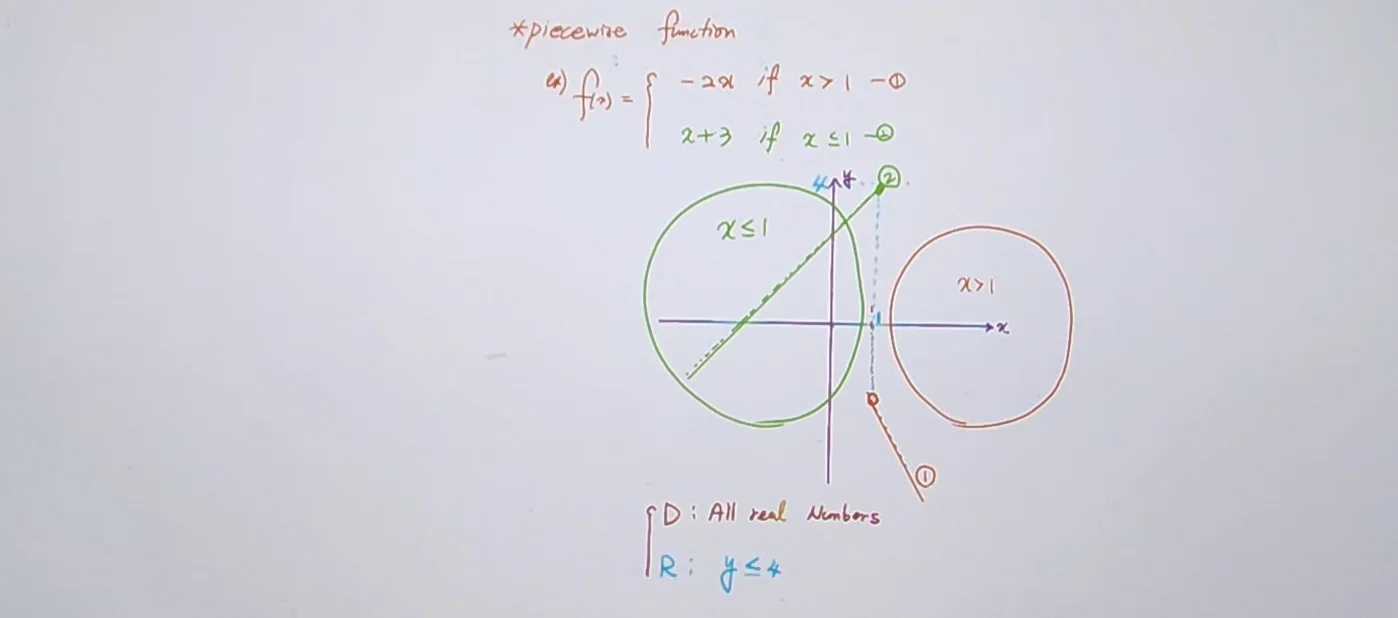 *piecewise function
ex) f(x) = { -2x if x > 1 -①
x+3 if x ≤ 1 -②
4 y ②
x ≤ 1
x > 1
1 x
①
D : All real Numbers
R : y ≤ 4